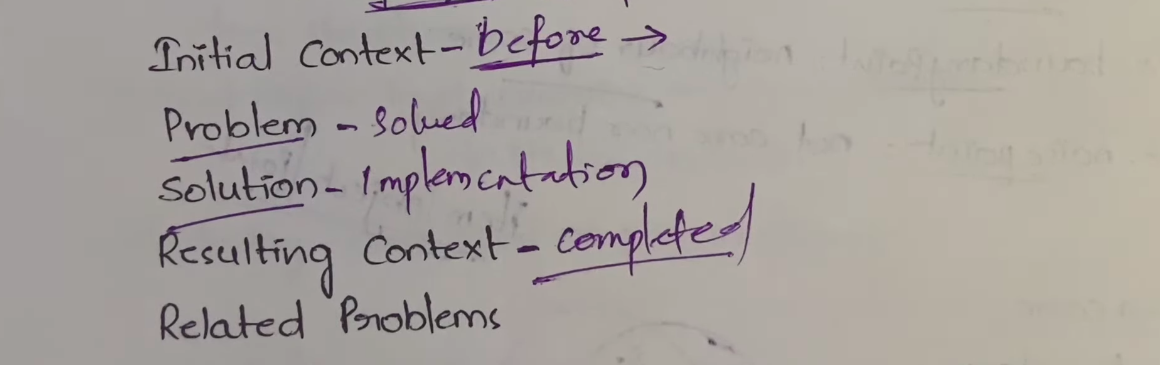 Initial Context - before →
Problem - solved
Solution - Implementation
Resulting Context - completed
Related Problems